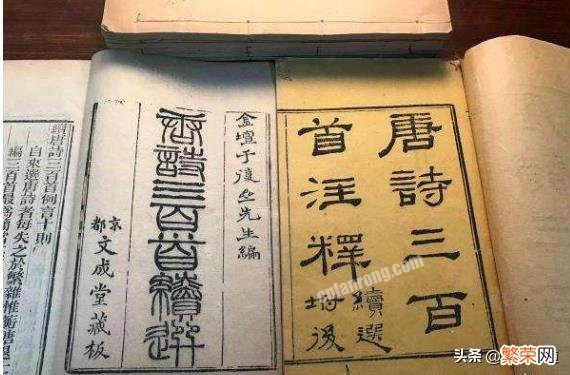 唐詩三百
首注釋
續選
坿後
金壇于復先生編
唐詩三百首續選
京都文成堂藏板
續唐詩三百首例言十則
自來選唐詩者每失之於繁雜惟蘅塘退
編三百首最爲簡
cplanrong.com
头条 @繁荣网